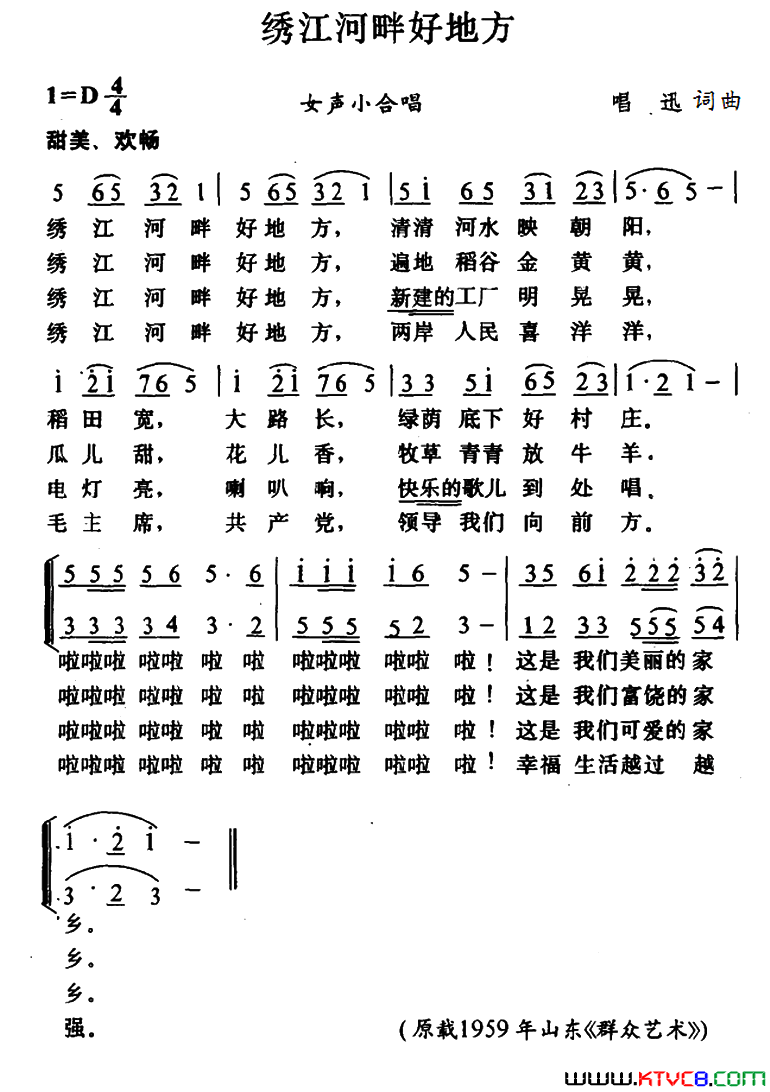 绣江河畔好地方
1=D 4/4 女声小合唱 唱迅 词曲
甜美、欢畅
5 65 32 1 | 5 65 32 1 | 5i 65 31 23 | 5·6 5 - |
绣江河畔好地方，清清河水映朝阳，
绣江河畔好地方，遍地稻谷金黄黄，
绣江河畔好地方，新建的工厂明晃晃，
绣江河畔好地方，两岸人民喜洋洋，
i 2i 76 5 | i 2i 76 5 | 33 5i 65 23 | 1·2 1 - |
稻田宽，大路长，绿荫底下好村庄。
瓜儿甜，花儿香，牧草青青放牛羊．
电灯亮，喇叭响，快乐的歌儿到处唱。
毛主席，共产党，领导我们向前方．
5 55 56 5·6 | i ii i6 5 - | 35 6i 2 22 32
3 33 34 3·2 | 5 55 52 3 - | 12 33 5 55 54
啦啦啦 啦啦 啦 啦 啦啦啦 啦啦 啦！这是 我们美丽的家
啦啦啦 啦啦 啦 啦 啦啦啦 啦啦 啦！这是 我们富饶的家
啦啦啦 啦啦 啦 啦 啦啦啦 啦啦 啦！这是 我们可爱的家
啦啦啦 啦啦 啦 啦 啦啦啦 啦啦 啦！幸福 生活越过 越
i·2 i - ‖
3·2 3 - ‖
乡。
乡。
乡。
强。 (原载1959年山东《群众艺术》)
www.KTVC8.com